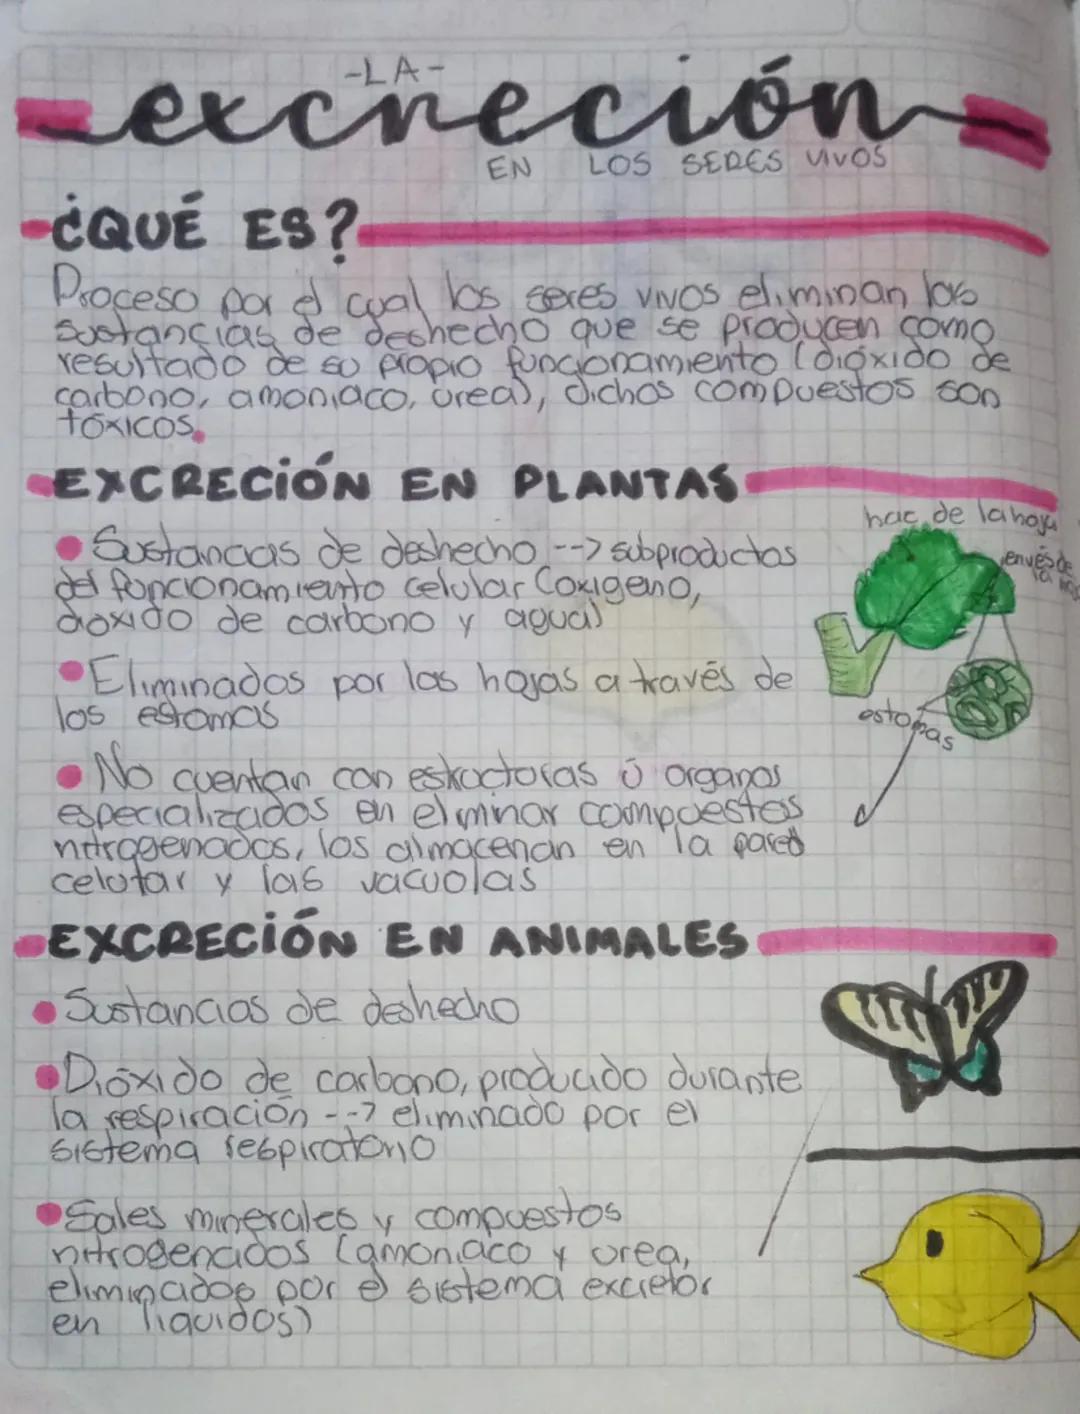 -LA-
excreción
EN LOS SERES VIVOS
¿QUÉ ES?
Proceso por el cual los seres vivos eliminan las
sustancias de deshecho que se producen como
resultado de su propio funcionamiento (dióxido de
carbono, amoniaco, urea), dichos compuestos son
tóxicos.
EXCRECIÓN EN PLANTAS
haz de la hoja
envés de
la
Sustancias de deshecho --> subproductos
del funcionamiento celular (oxigeno,
dioxido de carbono y agua)
Eliminados por las hojas a través de
los estomas
estomas
No cuentan con estructuras ó organos
especializados en eliminar compuestos
nitrogenados, los almacenan en la pared
celular y las vacuolas
EXCRECIÓN EN ANIMALES
Sustancias de deshecho
Dióxido de carbono, producido durante
la respiración --> eliminado por el
sistema respiratorio
Sales minerales y compuestos
nitrogenados (amoniaco y urea,
eliminados por el sistema excretor
en liquidos)